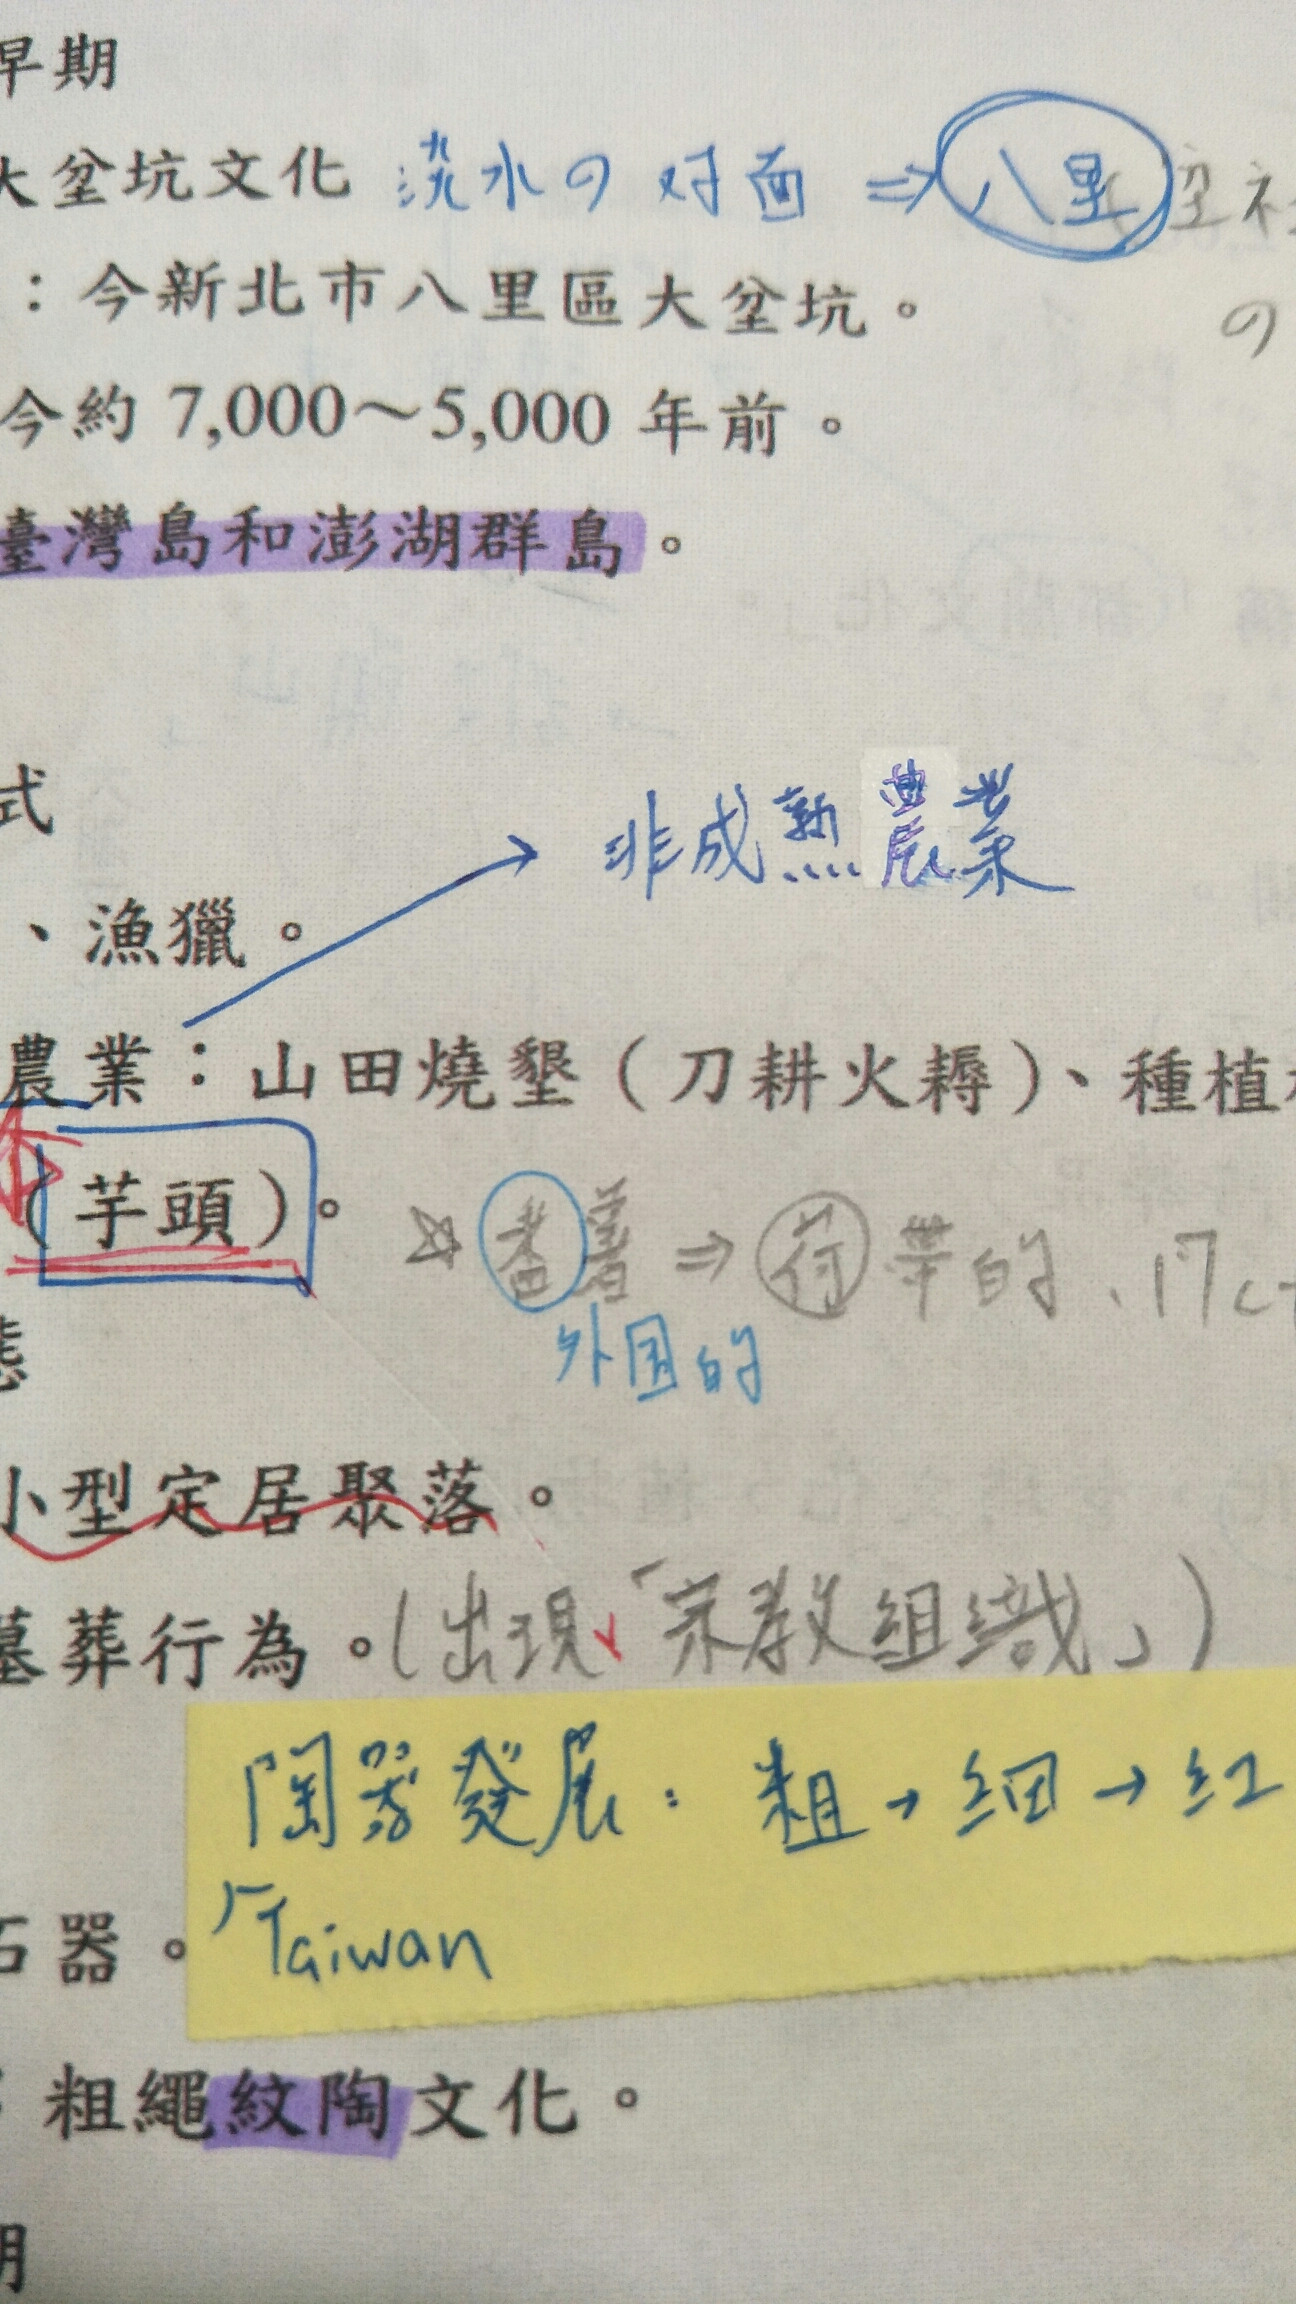 早期
大坌坑文化 淡水の対面 ⇒ 八里
：今新北市八里區大坌坑。
の
今約 7,000～5,000 年前。
臺灣島和澎湖群島。
式
非成熟農業
、漁獵。
農業：山田燒墾（刀耕火耨）、種植
（芋頭）。 ☆ 番薯 ⇒ 荷帶的、17c
外国的
態
小型定居聚落。
墓葬行為。(出現「宗教組織」)
陶器發展：粗→細→紅
「Taiwan
石器。
粗繩紋陶文化。
期